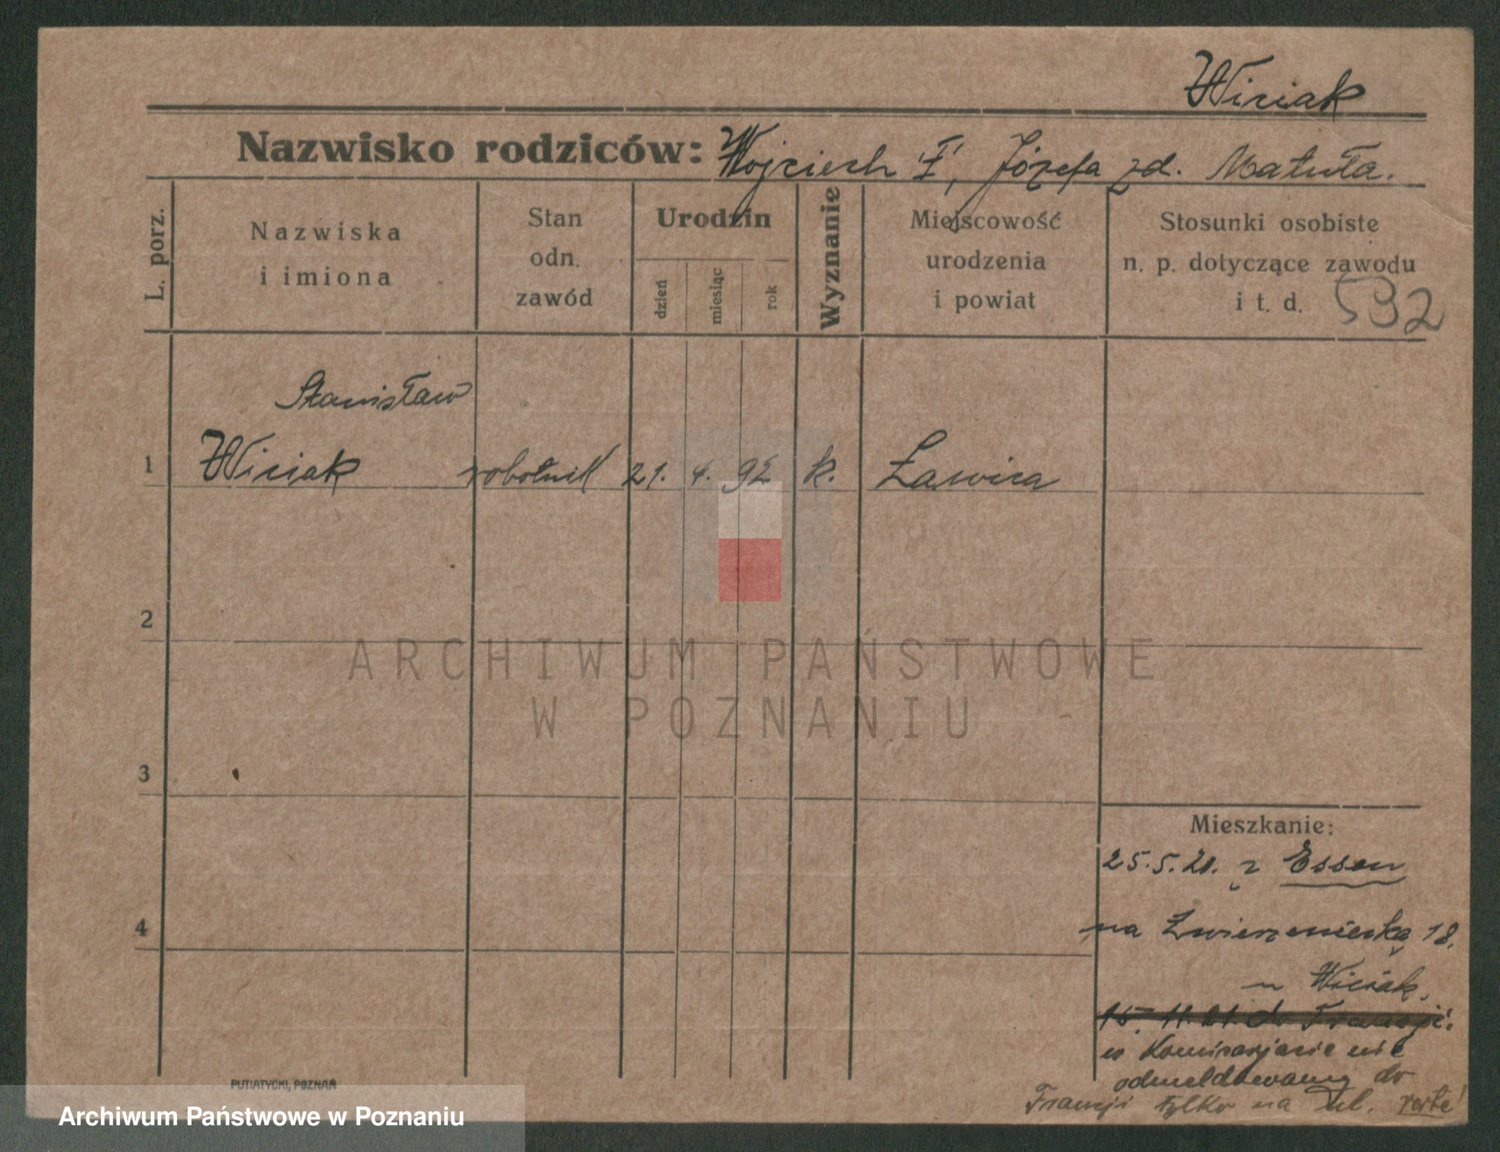 Wiciak
Nazwisko rodziców: Wojciech Ł, Józefa zd. Matuła.
L. porz.
Nazwiska
i imiona
Stan
odn.
zawód
Urodzin
dzień
miesiąc
rok
Wyznanie
Miejscowość
urodzenia
i powiat
Stosunki osobiste
n. p. dotyczące zawodu
i t. d.
592
Stanisław
1 Wiciak robotnik 21. 4. 92 k. Ławica
2
ARCHIWUM PAŃSTWOWE
W POZNANIU
3
Mieszkanie:
25.5.21. z Essen
4
na Zwierzyniecką 18.
u Wiciak.
15. 11. 21 do Francji.
w Komisarjacie nie
odmeldowany do
Francji tylko na ul.
PUTIATYCKI, POZNAŃ
Archiwum Państwowe w Poznaniu